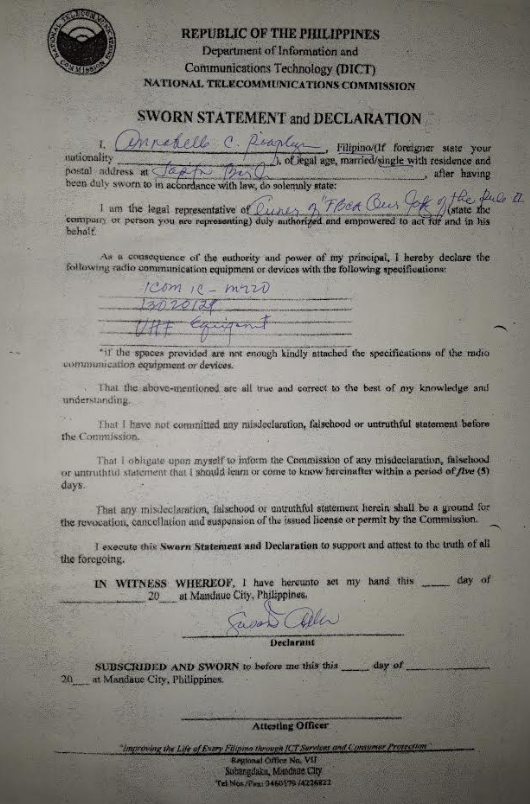 NATIONAL TELECOMMUNICATIONS COMMISSION
REPUBLIC OF THE PHILIPPINES
Department of Information and
Communications Technology (DICT)
NATIONAL TELECOMMUNICATIONS COMMISSION
SWORN STATEMENT and DECLARATION
I, Annabelle C., Filipino/(If foreigner state your
nationality ), of legal age, married/single with residence and
postal address at , after having
been duly sworn to in accordance with law, do solemnly state:
I am the legal representative of Owner of FBca Our of the II (state the
company or person you are representing) duly authorized and empowered to act for and in his
behalf.
As a consequence of the authority and power of my principal, I hereby declare the
following radio communication equipment or devices with the following specifications:
icom ic - m220
VHF Equipment
*if the spaces provided are not enough kindly attached the specifications of the radio
communication equipment or devices.
That the above-mentioned are all true and correct to the best of my knowledge and
understanding.
That I have not committed any misdeclaration, falsehood or untruthful statement before
the Commission.
That I obligate upon myself to inform the Commission of any misdeclaration, falsehood
or untruthful statement that I should learn or come to know hereinafter within a period of five (5)
days.
That any misdeclaration, falsehood or untruthful statement herein shall be a ground for
the revocation, cancellation and suspension of the issued license or permit by the Commission.
I execute this Sworn Statement and Declaration to support and attest to the truth of all
the foregoing.
IN WITNESS WHEREOF, I have hereunto set my hand this ____ day of
____ 20__ at Mandaue City, Philippines.
Declarant
SUBSCRIBED AND SWORN to before me this this ____ day of ____
20__ at Mandaue City, Philippines.
Attesting Officer
"Improving the Life of Every Filipino through ICT Services and Consumer Protection"
Regional Office No. VII
Subangdaku, Mandaue City
Tel Nos./Fax: 3460179 /4226822